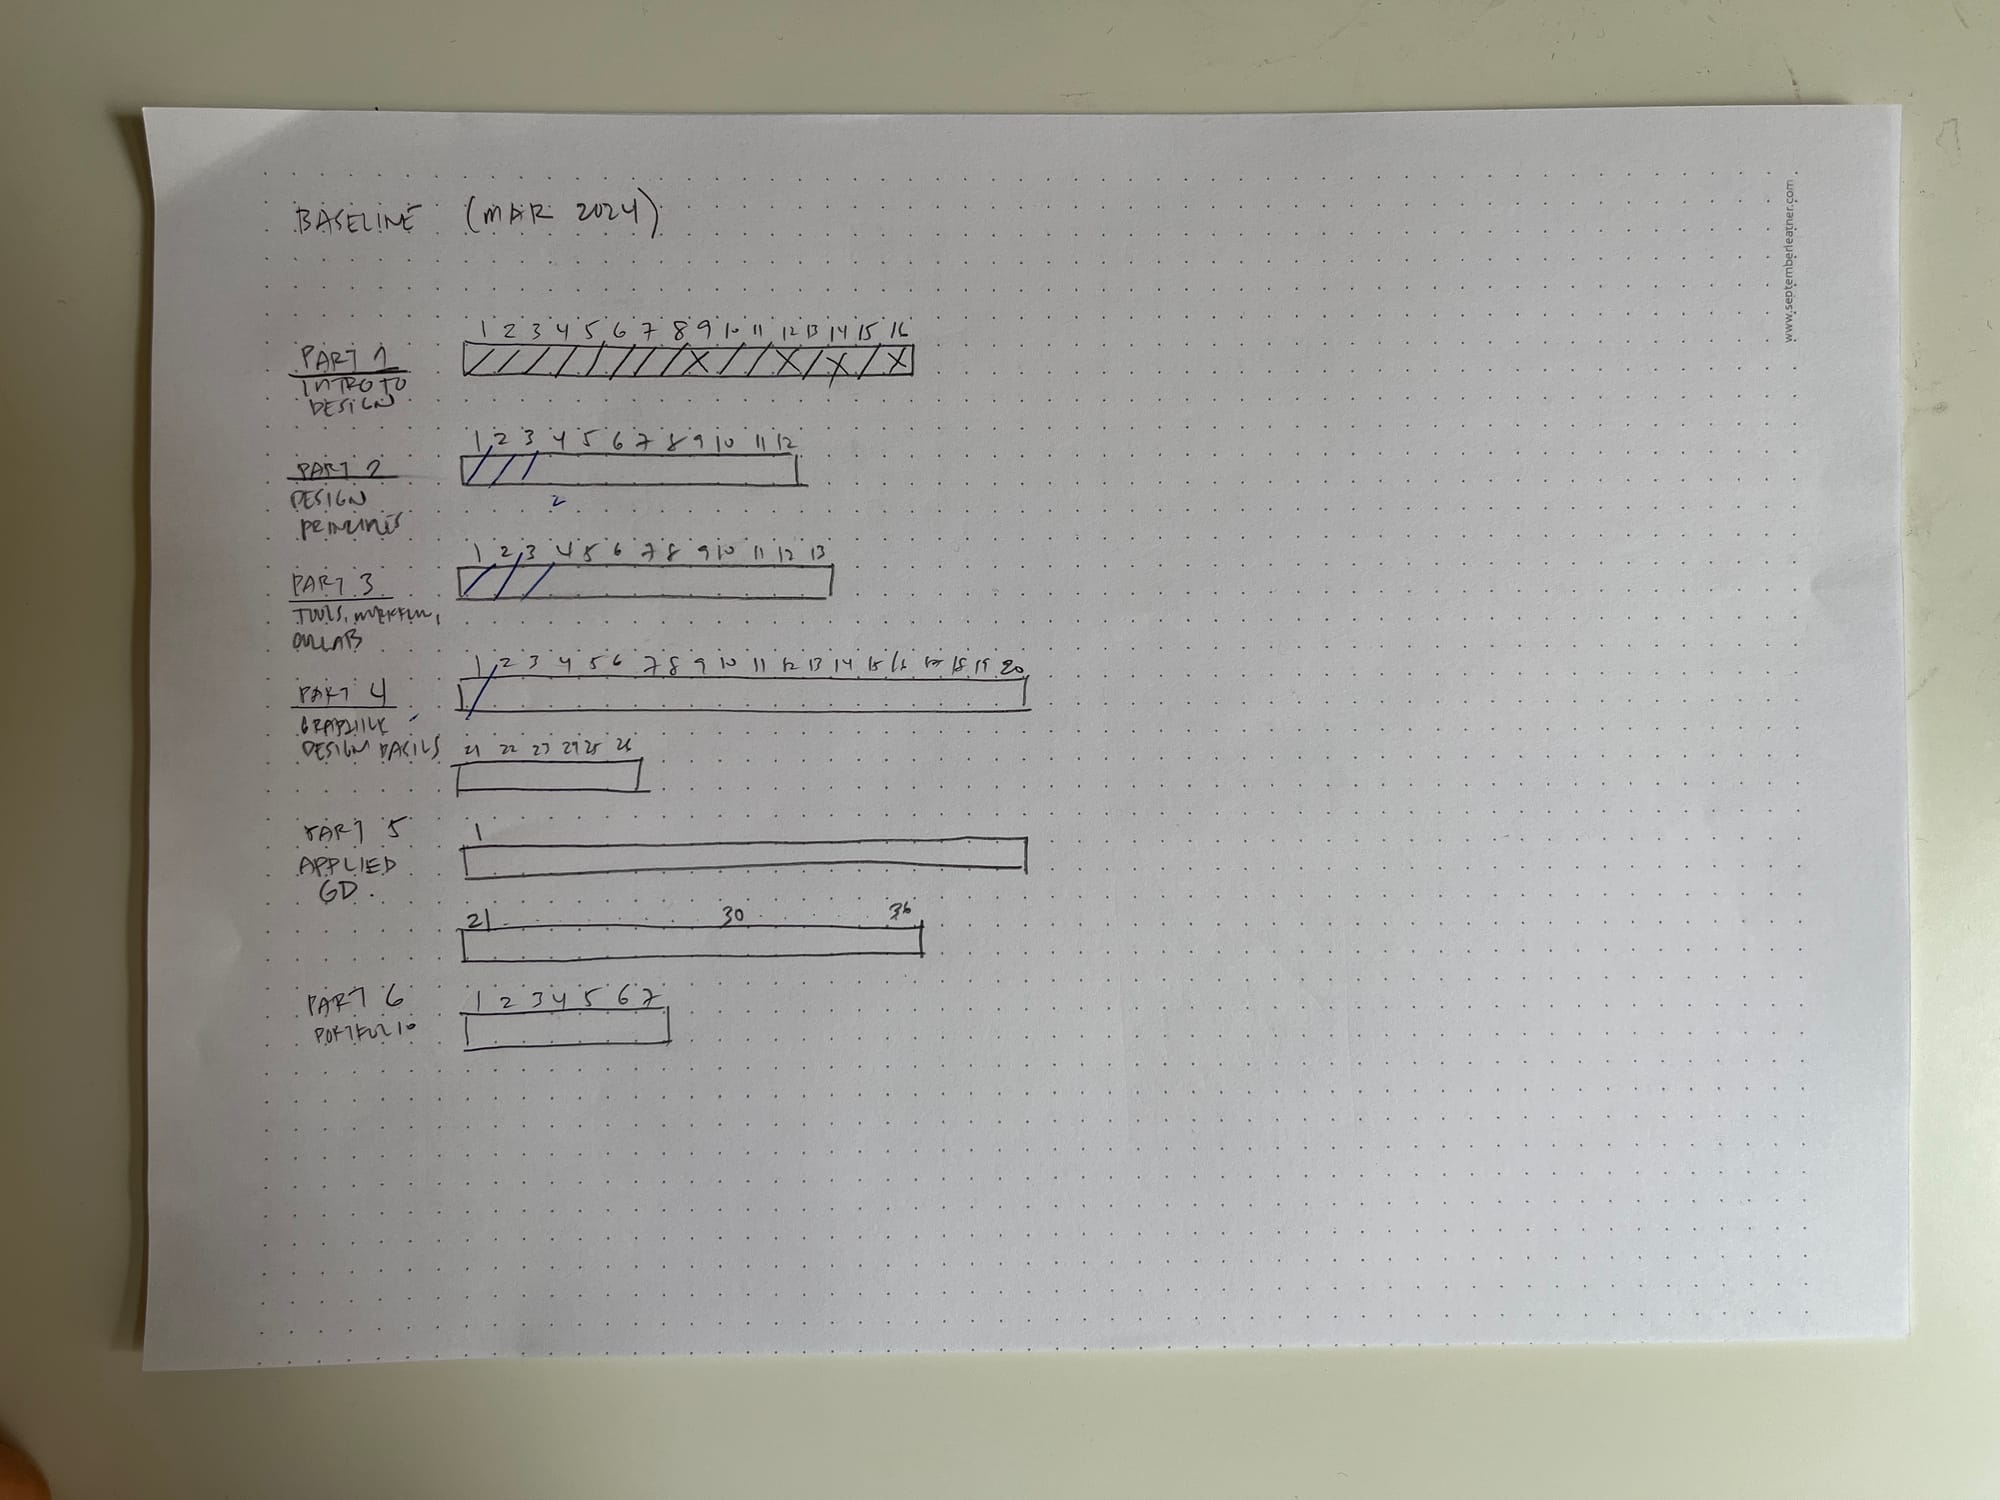 BASELINE (MAR 2024)
www.septemberleather.com
1 2 3 4 5 6 7 8 9 10 11 12 13 14 15 16
PART 1
INTRO TO
DESIGN
1 2 3 4 5 6 7 8 9 10 11 12
PART 2
2
DESIGN
PRINCIPLES
1 2 3 4 5 6 7 8 9 10 11 12 13
PART 3
TOOLS,
COLLAB
1 2 3 4 5 6 7 8 9 10 11 12 13 14 15 16 17 18 19 20
PART 4
GRAPHIC
DESIGN BASICS
21 22 23 24 25 26
PART 5
1
APPLIED
GD.
21 30 36
PART 6
1 2 3 4 5 6 7
PORTFOLIO